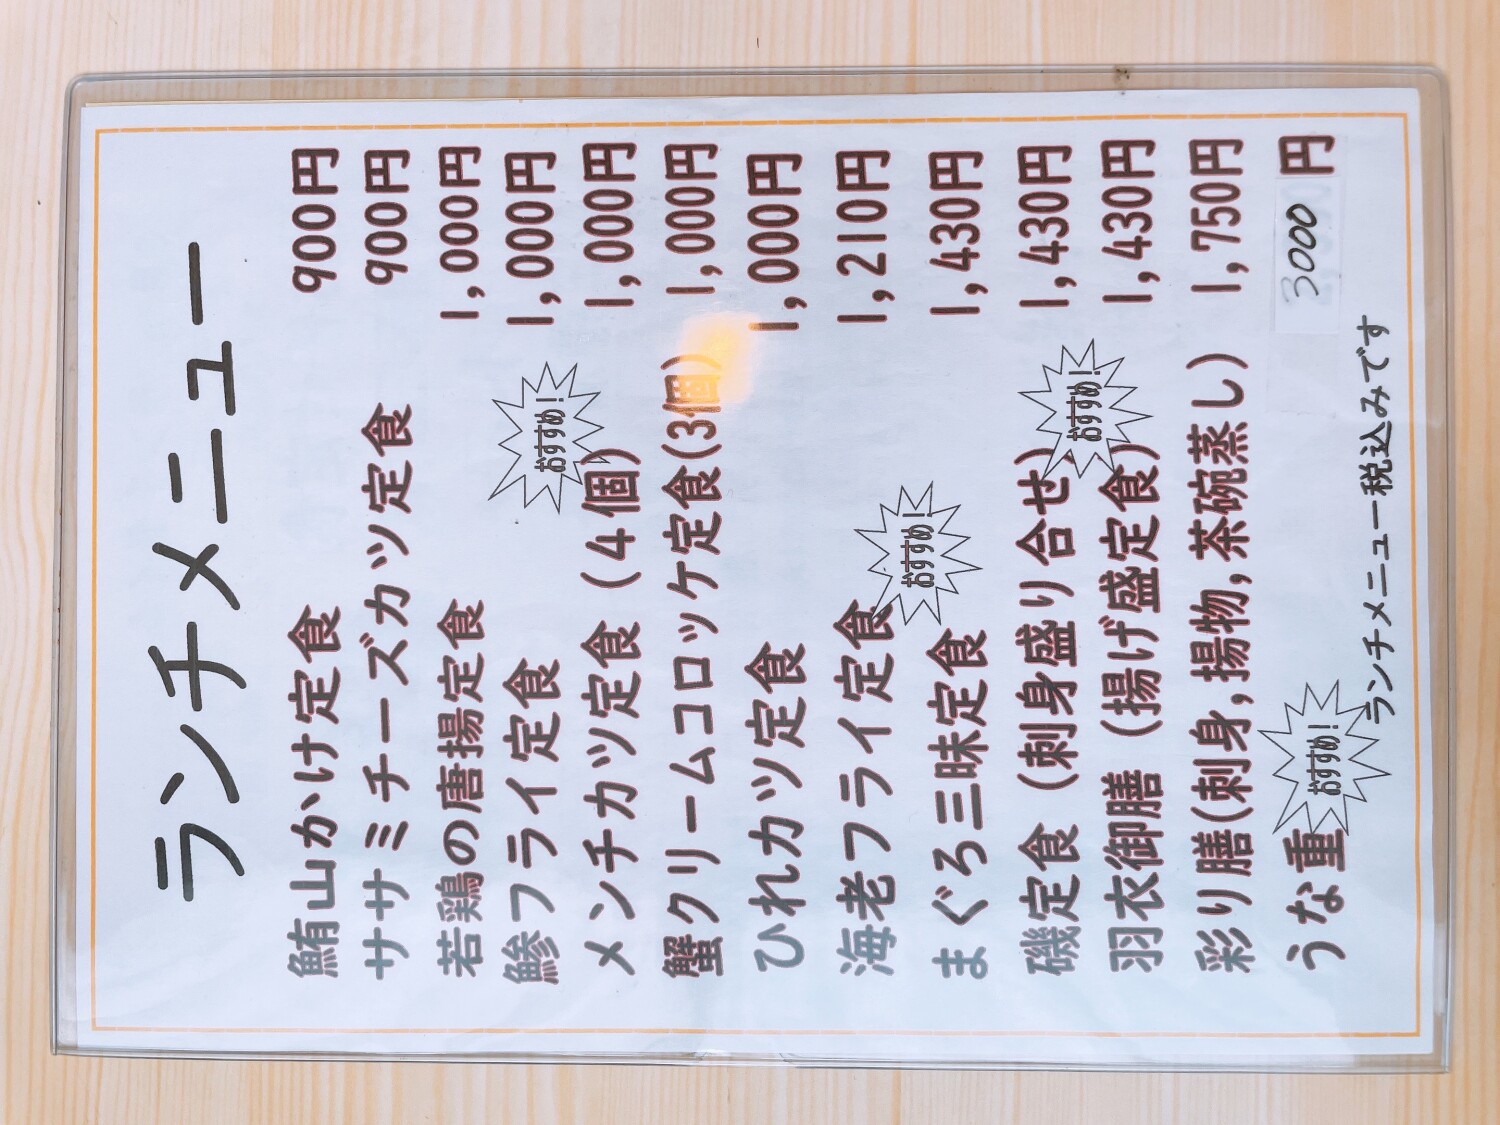 ランチメニュー
鮪山かけ定食 900円
ササミチーズカツ定食 900円
若鶏の唐揚定食 1,000円
鯵フライ定食 1,000円
おすすめ!
メンチカツ定食(4個) 1,000円
蟹クリームコロッケ定食(3個) 1,000円
ひれカツ定食 1,000円
海老フライ定食 1,210円
おすすめ!
まぐろ三昧定食 1,430円
磯定食(刺身盛り合せ) 1,430円
おすすめ!
羽衣御膳(揚げ盛定食) 1,430円
彩り膳(刺身,揚物,茶碗蒸し) 1,750円
うな重 3000円
おすすめ!
ランチメニュー税込みです